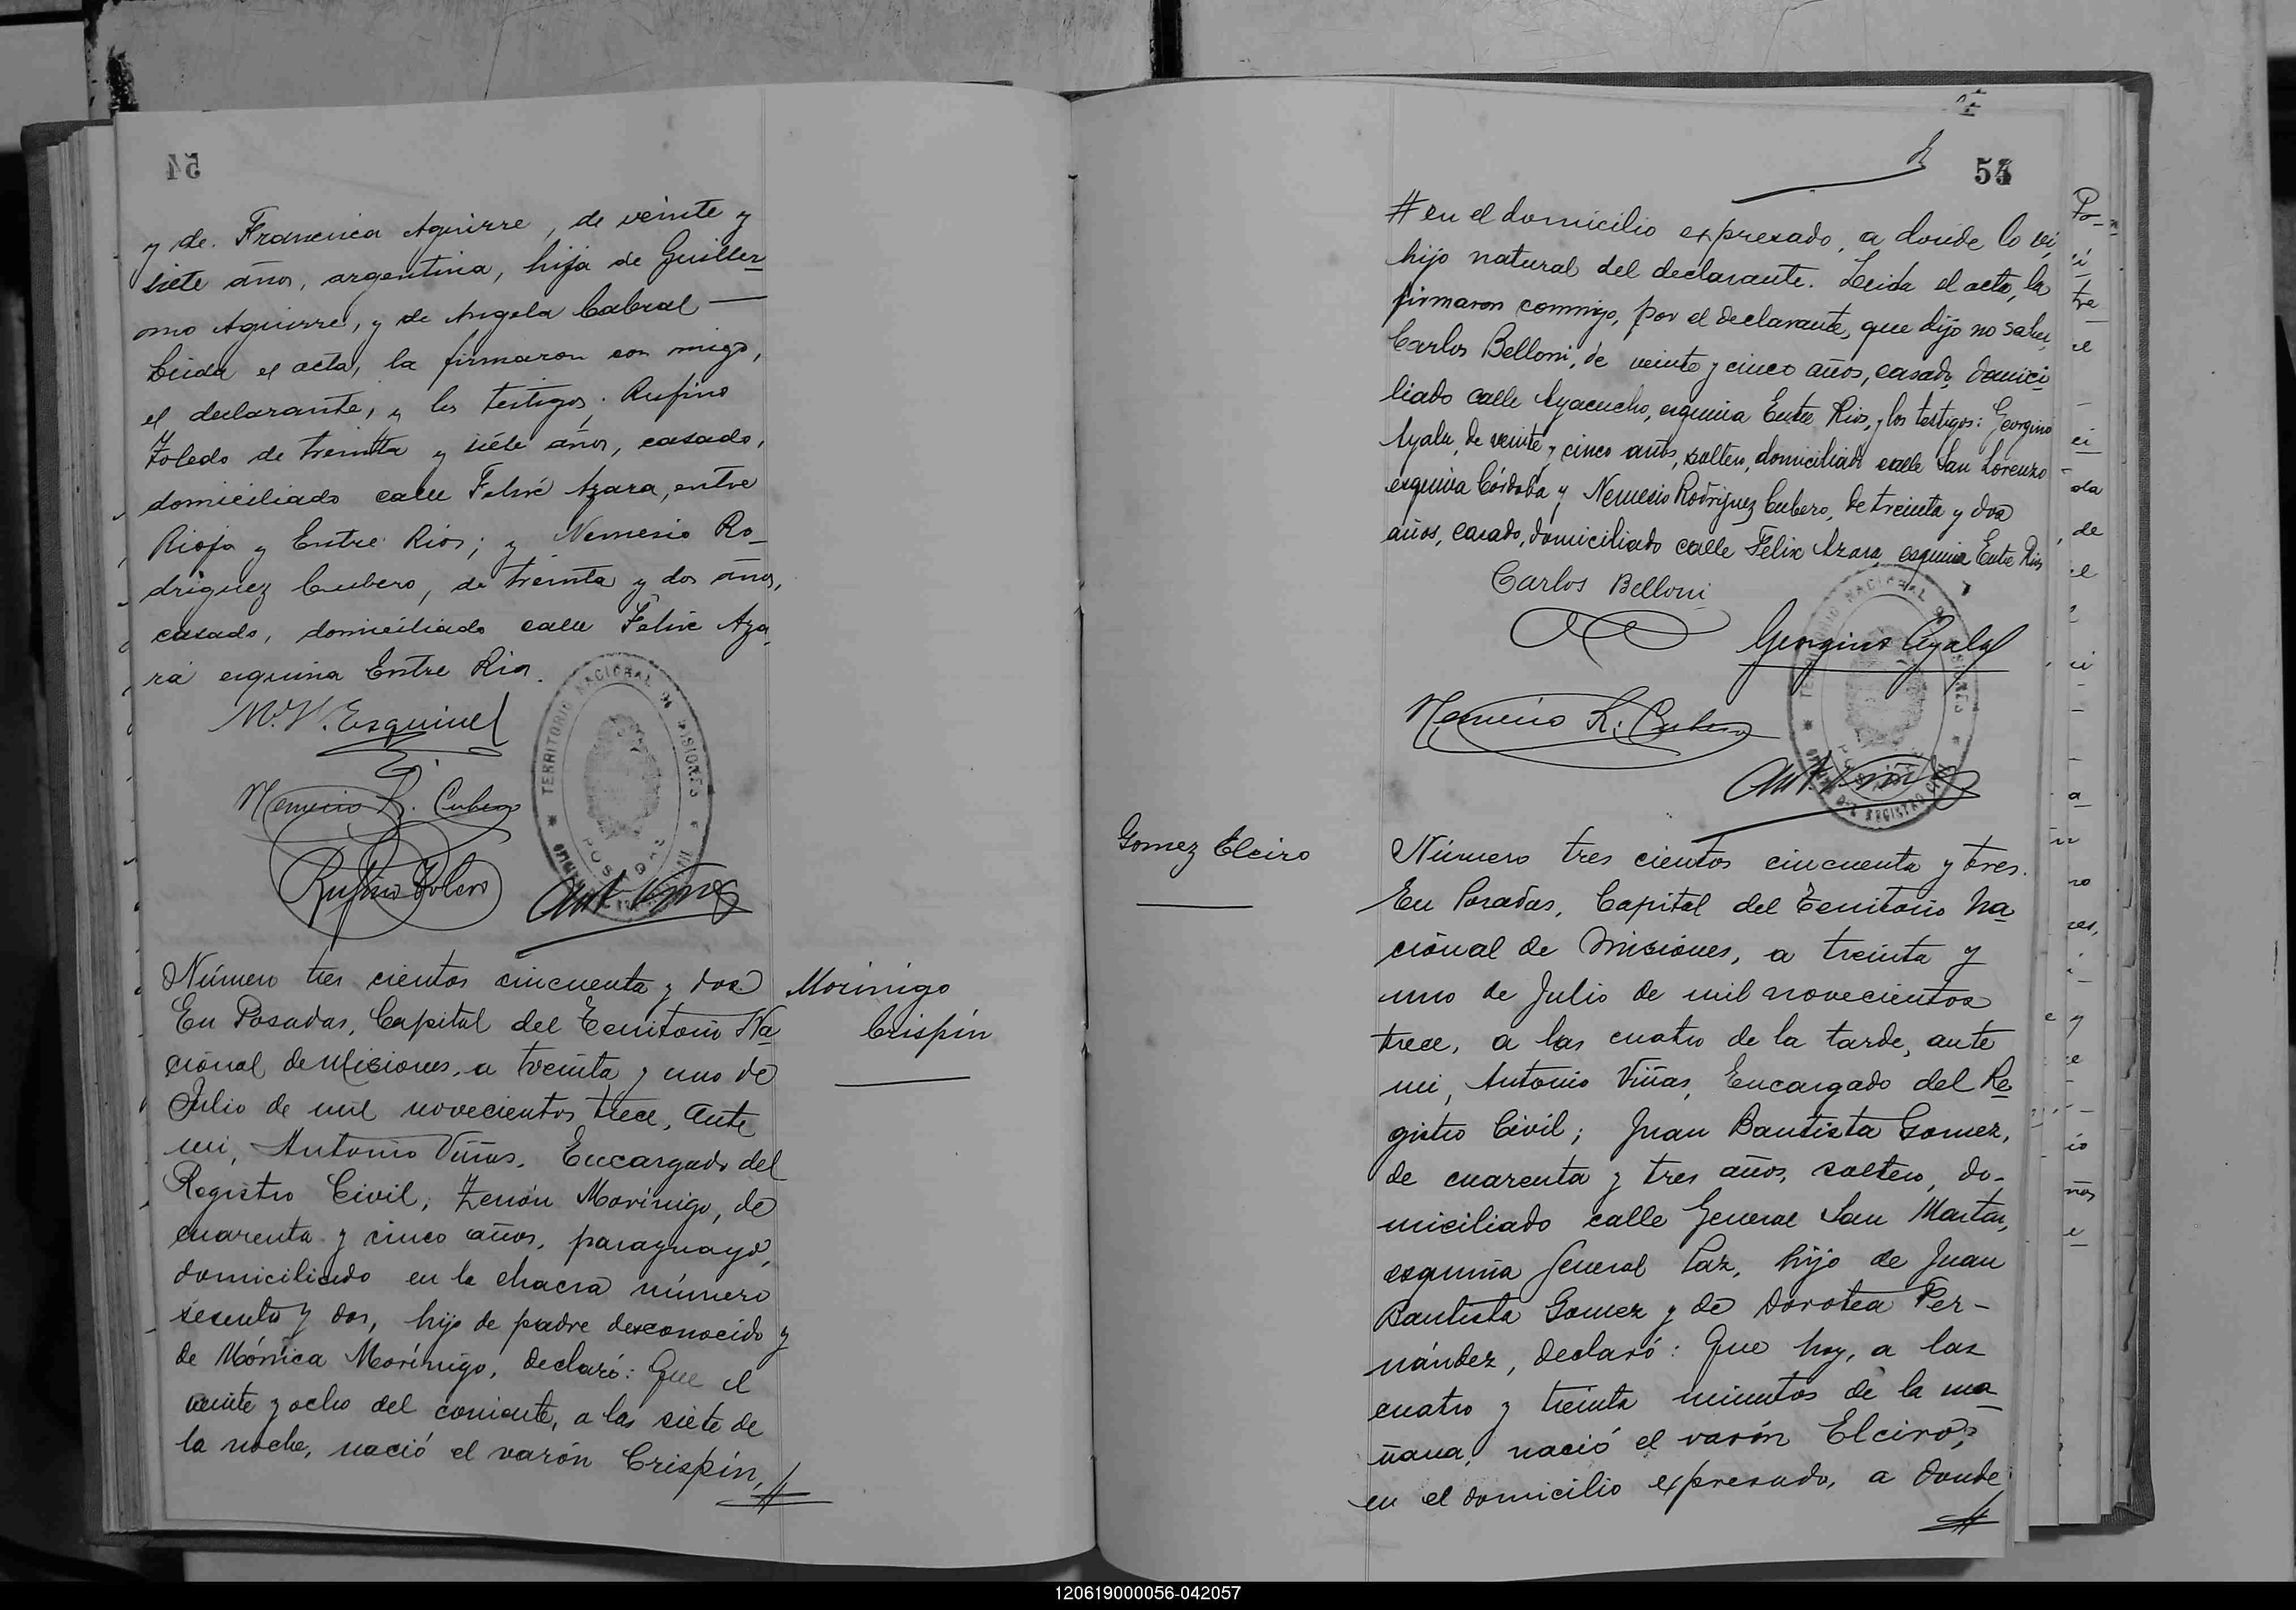 54
y de Francisca Aguirre, de veinte y
siete años, argentina, hija de Guiller-
mo Aguirre, y de Angela Cabral —
Leida el acta, la firmaron con migo,
el declarante, y los testigos: Rufino
Toledo de treinta y siete años, casado,
domiciliado calle Felix Azara, entre
Rioja y Entre Rios; y Nemesio Ro-
driguez Cubero, de treinta y dos años,
casado, domiciliado calle Felix Aza
ra esquina Entre Rios.
M. V. Esquivel
Nemesio R. Cubero
Rufino Toledo
Ant. Viñas
TERRITORIO NACIONAL DE MISIONES
POSADAS
Número tres cientos cincuenta y dos
En Posadas, Capital del Territorio Na
cional de Misiones, a treinta y uno de
Julio de mil novecientos trece, ante
mi, Antonio Viñas, Encargado del
Registro Civil; Zenón Morínigo, de
cuarenta y cinco años, paraguayo,
domiciliado en la chacra número
sesenta y dos, hijo de padre desconocido y
de Mónica Morínigo, declaró: Que el
veinte y ocho del corriente, a las siete de
la noche, nació el varón Crispín,
#
Morinigo
Crispín
54
# en el domicilio expresado, a donde lo vi,
hijo natural del declarante. Leida el acta, la
firmaron conmigo, por el declarante, que dijo no saber,
Carlos Belloni, de veinte y cinco años, casado, domici
liado calle Ayacucho, esquina Entre Rios, y los testigos: Georgino
Ayala, de veinte y cinco años, soltero, domiciliado calle San Lorenzo
esquina Córdoba y Nemesio Rodriguez Cubero, de treinta y dos
años, casado, domiciliado calle Felix Azara esquina Entre Rios
Carlos Belloni
Georgino Ayala
Nemesio R. Cubero
Ant. Viñas
TERRITORIO NACIONAL DE MISIONES
POSADAS
OFICINA DEL REGISTRO CIVIL
Gomez Elciro
Número tres cientos cincuenta y tres.
En Posadas, Capital del Territorio Na
cional de Misiones, a treinta y
uno de Julio de mil novecientos
trece, a las cuatro de la tarde, ante
mi, Antonio Viñas, Encargado del Re
gistro Civil; Juan Bautista Gomez,
de cuarenta y tres años, soltero, do-
miciliado calle General San Martin,
esquina General Paz, hijo de Juan
Bautista Gomez y de Dorotea Fer-
nández, declaró: Que hoy, a las
cuatro y treinta minutos de la ma
ñana, nació el varón Elciro,
en el domicilio expresado, a donde
#
120619000056-042057